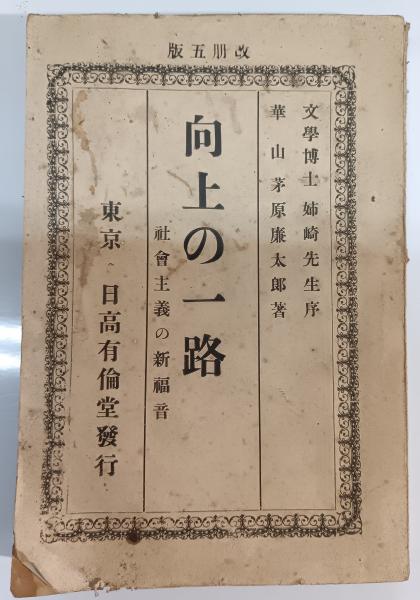 改册五版
文學博士 姉崎先生序
華山 茅原廉太郞著
向上の一路
社會主義の新福音
東京 日高有倫堂發行